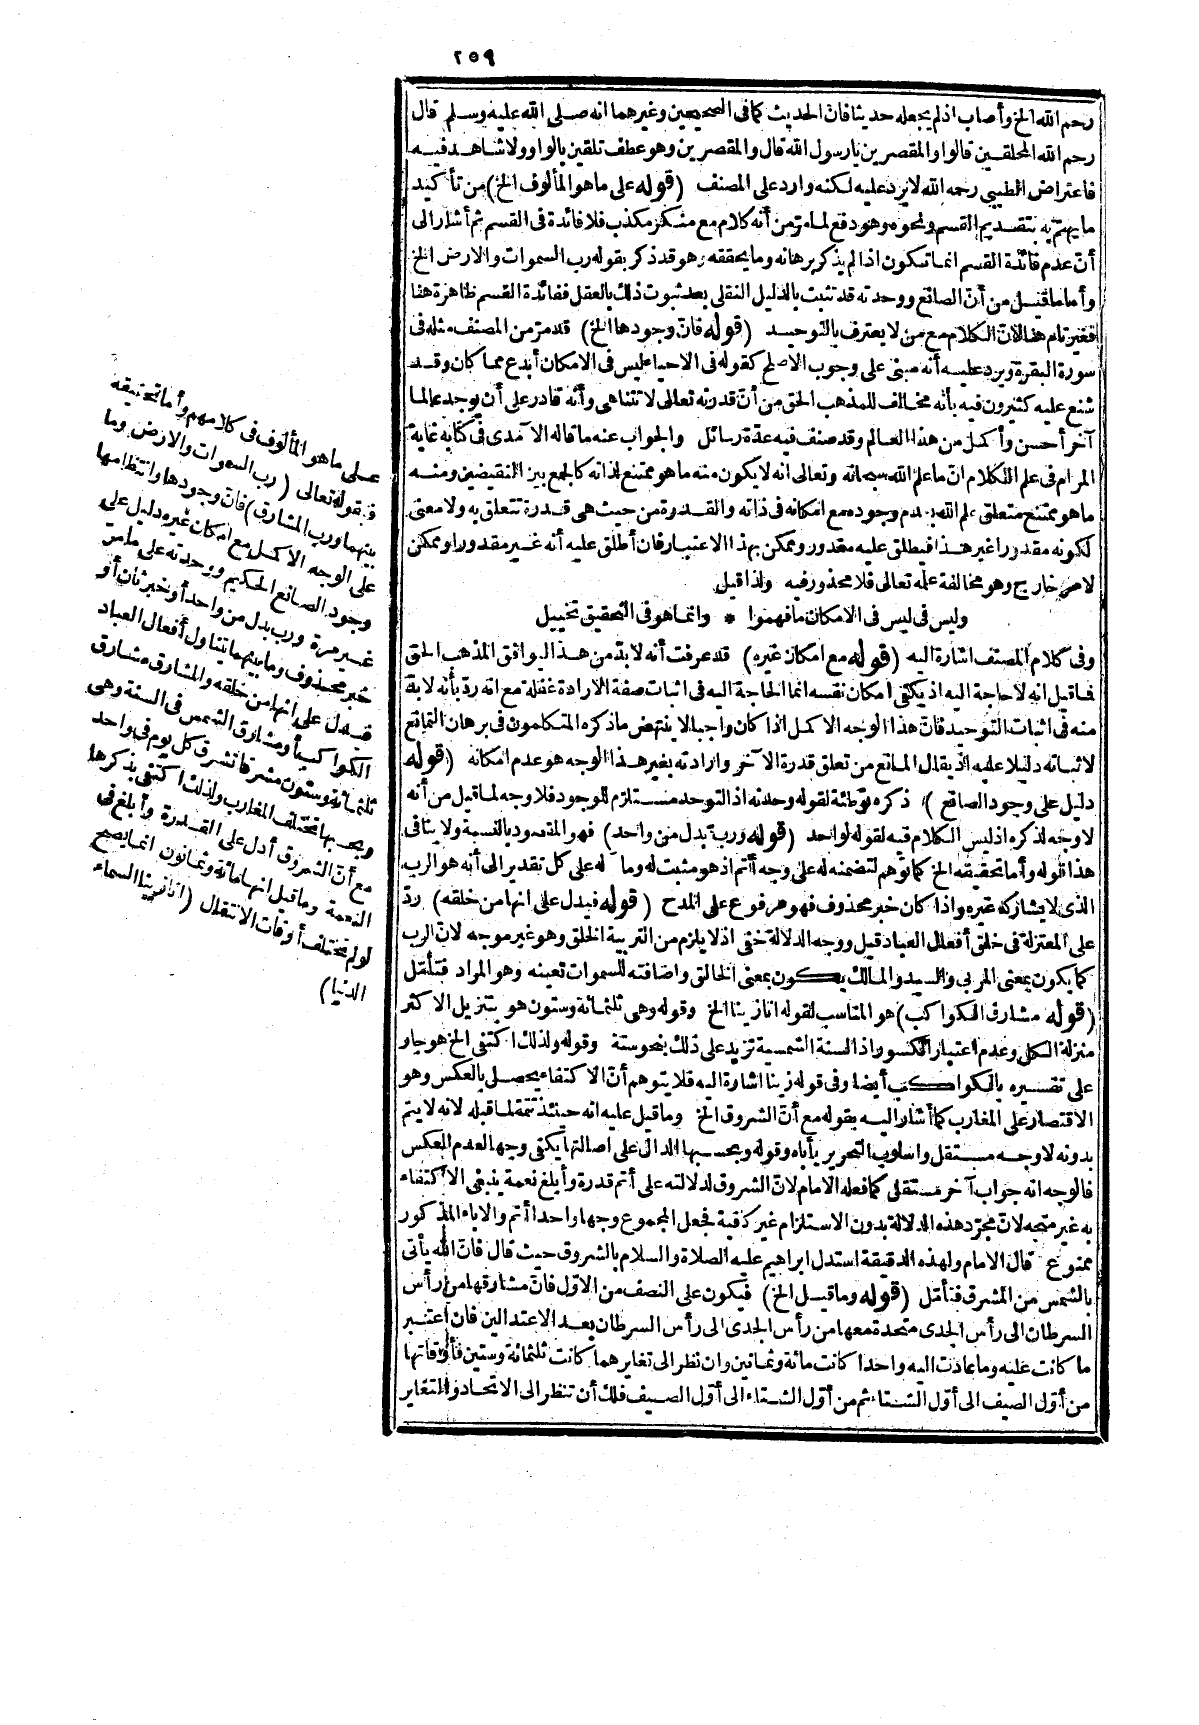 ٢٥٩
رحم الله الخ وأصاب اذ لم يجعله حديثا فان الحديث كما في الصحيحين وغيرهما انه صلى الله عليه وسلم قال
رحم الله المحلقين قالوا والمقصرين يا رسول الله قال والمقصرين وهو عطف تلقين بالواو ولا شاهد فيه
فاعتراض الطيبي رحمه الله لا يرد عليه لكنه وارد على المصنف (قوله على ما هو المألوف الخ) من تأكيد
ما يهتم به بتقديم القسم ونحوه وهو دفع لما مر من أنه كلام مع منكر مكذب فلا فائدة في القسم ثم أشار الى
أن عدم فائدة القسم انما تكون اذا لم يذكر برهانه وما يحققه وهو قد ذكر بقوله رب السموات والارض الخ
وأما ما قيل من أن الصانع ووحدته قد تثبت بالدليل النقلي بعد ثبوت ذلك بالعقل ففائدة القسم ظاهرة هنا
فغير تام هنا لان الكلام مع من لا يعترف بالتوحيد (قوله فان وجودها الخ) قد مر من المصنف مثله في
سورة البقرة ويرد عليه أنه مبنى على وجوب الاصلح كقوله في الاحياء ليس في الامكان أبدع مما كان وقد
شنع عليه كثيرون فيه بأنه مخالف للمذهب الحق من أن قدرته تعالى لا تتناهى وأنه قادر على أن يوجد عالما
آخر أحسن وأكمل من هذا العالم وقد صنف فيه عدة رسائل والجواب عنه ما قاله الآمدى في كتابه غاية
المرام في علم الكلام ان ما علم الله سبحانه وتعالى انه لا يكون منه ما هو ممتنع لذاته كالجمع بين النقيضين ومنه
ما هو ممتنع متعلق علم الله بعدم وجوده مع امكانه في ذاته والقدرة من حيث هي قدرة تتعلق به ولا معنى
لكونه مقدورا غير هذا فيطلق عليه مقدور وممكن بهذا الاعتبار فان أطلق عليه أنه غير مقدور أو ممكن
لامر خارج وهو مخالفة علمه تعالى فلا محذور فيه ولذا قيل
وليس في ليس في الامكان ما فهموا * وانما هو في التحقيق تخييل
وفي كلام المصنف اشارة اليه (قوله مع امكان غيره) قد عرفت أنه لا بد من هذا ليوافق المذهب الحق
فما قيل انه لا حاجة اليه اذ يكفي امكان نفسه انما الحاجة اليه في اثبات صفة الارادة غفلة مع انه رد بأنه لا بد
منه في اثبات التوحيد فان هذا الوجه الاكمل اذا كان واجبا لا ينتهض ما ذكره المتكلمون في برهان التمانع
لاثباته دليلا عليه اذ يقال المانع من تعلق قدرة الآخر وارادته بغير هذا الوجه هو عدم امكانه (قوله
دليل على وجود الصانع) ذكره توطئة لقوله وحدته اذ التوحد مستلزم للوجود فلا وجه لما قيل من أنه
لا وجه لذكره اذ ليس الكلام فيه لقوله لواحد (قوله ورب بدل من واحد) فهو المقصود بالنسبة ولا ينافي
هذا قوله وأما تحقيقه الخ كما توهم لتضمنه له على وجه أتم اذ هو مثبت له وما له على كل تقدير الى أنه هو الرب
الذى لا يشاركه غيره واذا كان خبر محذوف فهو مرفوع على المدح (قوله فيدل على انها من خلقه) رد
على المعتزلة في خلق أفعال العباد قيل ووجه الدلالة خفى اذ لا يلزم من التربية الخلق وهو غير موجه لان الرب
كما يكون بمعنى المربى والسيد والمالك يكون بمعنى الخالق واضافته للسموات تعينه وهو المراد فتأمل
(قوله مشارق الكواكب) هو المناسب لقوله انا زينا الخ وقوله وهي ثلثمائة وستون هو بتنزيل الاكثر
منزلة الكل وعدم اعتبار الكسور اذ السنة الشمسية تزيد على ذلك بنحو ستة وقوله ولذلك اكتفى الخ هو جار
على تفسيره بالكواكب أيضا وفي قوله زينا اشارة اليه فلا يتوهم أن الاكتفاء يحصل بالعكس وهو
الاقتصار على المغارب كما أشار اليه بقوله مع أن الشروق الخ وما قيل عليه انه حينئذ تتمة لما قبله لانه لا يتم
بدونه لا وجه مستقل وأسلوب التحرير يأباه وقوله وبحسبها الدال على اصالتها يكفى وجها لعدم العكس
فالوجه انه جواب آخر مستقل كما فعله الامام لان الشروق لدلالته على أتم قدرة وأبلغ نعمة ينبغي الاكتفاء
به غير متجه لان مجرد هذه الدلالة بدون الاستلزام غير كافية فجعل المجموع وجها واحدا أتم والاباء المذكور
ممنوع قال الامام ولهذه الدقيقة استدل ابراهيم عليه الصلاة والسلام بالشروق حيث قال فان الله يأتى
بالشمس من المشرق فتأمل (قوله وما قيل الخ) فيكون على النصف من الاول فان مشارقها من رأس
السرطان الى رأس الجدى متحدة معها من رأس الجدى الى رأس السرطان بعد الاعتدالين فان اعتبر
ما كانت عليه وما عادت اليه واحدا كانت مائة وثمانين وان نظر الى تغايرهما كانت ثلثمائة وستين فأوقاتها
من أول الصيف الى أول الشتاء ثم من أول الشتاء الى أول الصيف فلك أن تنظر الى الاتحاد والتغاير
على ما هو المألوف في كلامهم وأما تحقيقه
فبقوله تعالى (رب السموات والارض وما
بينهما ورب المشارق) فان وجودها وانتظامها
على الوجه الاكمل مع امكان غيره دليل على
وجود الصانع الحكيم ووحدته على ما مر
غير مرة ورب بدل من واحد أو خبر ثان أو
خبر محذوف وما بينهما يتناول أفعال العباد
فيدل على انها من خلقه والمشارق مشارق
الكواكب أو مشارق الشمس في السنة وهي
ثلثمائة وستون مشرقا تشرق كل يوم في واحد
وبحسبها تختلف المغارب ولذلك اكتفى بذكرها
مع أن الشروق أدل على القدرة وأبلغ في
النعمة وما قيل انها مائة وثمانون انما يصح
لو لم تختلف أوقات الانتقال (انا زينا السماء
الدنيا)